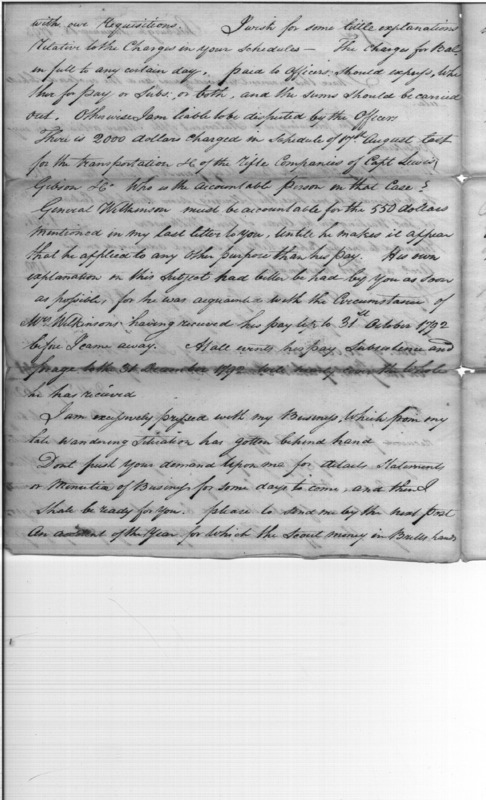 with our Requisitions. I wish for some little explanations
Relative to the Charges in your Schedules — The Charges for Bal.
in full to any certain day, paid to Officers should express, whe
ther for pay or Subs. or both, and the sums should be carried
out. Otherwise I am liable to be disputed by the Officers
There is 2000 dollars charged in Schedule of 17th August last
for the transportation &c of the Rifle Companies of Capt Lewis
Gibson &c Who is the Accountable person in that Case?
General Wilkinson must be accountable for the 550 dollars
mentioned in my last letter to you, untile he makes it appear
that he applied to any other purpose than his pay. His own
explanation on this Subject had better be had by you as soon
as possible, for he was acquainted with the Circumstance of
Mrs Wilkinsons having received his pay up to 31st October 1792
before I came away. At all events his pay, Subsistence and
forage to the 31 December 1792 the whole
he has received
I am excessively pressed with my Business, Which from my
late Wandering Situation has gotten behind hand
Dont push your demand Upon me for details, Statements
or Minutia of Business for some days to come, and then I
Shall be ready for you. please to send me by the next post
An account of the Year for which the Scout money in Brells hands